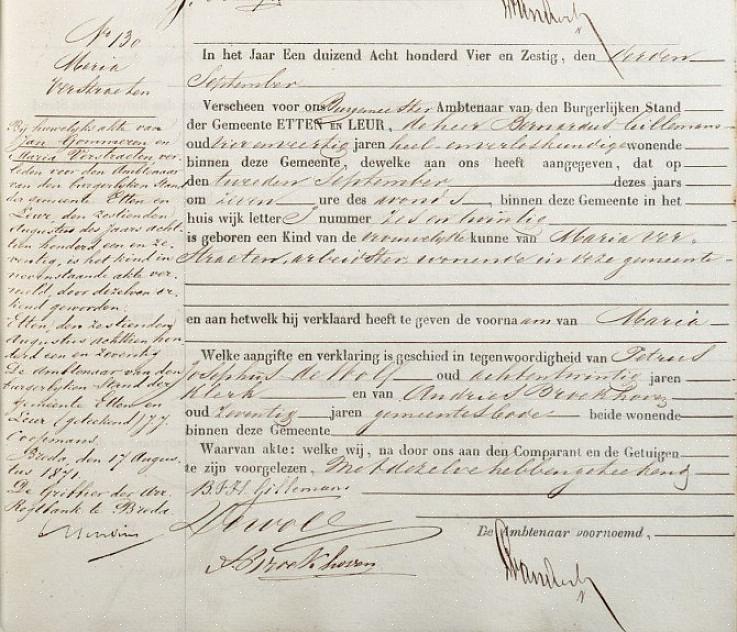 No 130
Maria
Verstraeten
Bij huwelijks akte van
Jan Gommeren en
Maria Verstraeten ver-
leden voor den Ambtenaar
van den burgerlijken Stand
der gemeente Etten en
Leur, den zestienden
Augustus des jaars acht-
tien honderd een en ze-
ventig, is het kind in
nevenstaande akte ver-
meld, door dezelven er-
kend geworden.
Etten, den zestienden
Augustus achttien hon-
derd een en zeventig
De Ambtenaar van den
burgerlijken Stand der
gemeente Etten en
Leur (geteekend) J. J.
Coopmans.
Breda, den 17 Augus-
tus 1871.
De Griffier der Arr.
Regtbank te Breda.
In het Jaar Een duizend Acht honderd Vier en Zestig, den derden
September
Verscheen voor ons Burgemeester Ambtenaar van den Burgerlijken Stand
der Gemeente ETTEN EN LEUR, de heer Bernardus Gillemans
oud vier en veertig jaren heel- en verloskundige wonende
binnen deze Gemeente, dewelke aan ons heeft aangegeven, dat op
den tweeden September dezes jaars
om zeven ure des avonds, binnen deze Gemeente in het
huis wijk letter S nummer zes en twintig
is geboren een Kind van de vrouwelijke kunne van Maria Ver-
straeten, arbeidster, wonende in deze gemeente
en aan hetwelk hij verklaard heeft te geven de voornaam van Maria
Welke aangifte en verklaring is geschied in tegenwoordigheid van Petrus
Josephus de Wolf oud acht en twintig jaren
Klerk en van Andries Broekhoven
oud zeventig jaren gemeentebode beide wonende
binnen deze Gemeente
Waarvan akte: welke wij, na door ons aan den Comparant en de Getuigen
te zijn voorgelezen, Met dezelve hebben geteekend
B. F. H. Gillemans
Dewolf
A. Broekhoven
De Ambtenaar voornoemd,